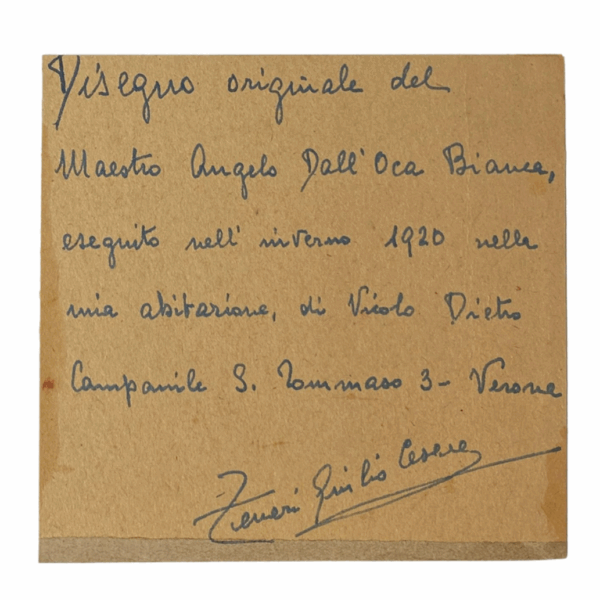 Disegno originale del
Maestro Angelo Dall'Oca Bianca,
eseguito nell'inverno 1920 nella
mia abitazione, di Vicolo Dietro
Campanile S. Tommaso 3- Verona
Cesare